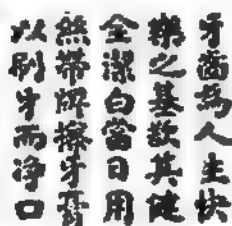 牙齒為人生快
樂之基故其健
全潔白當日用
無帶牌擦牙膏
以刷牙而净口